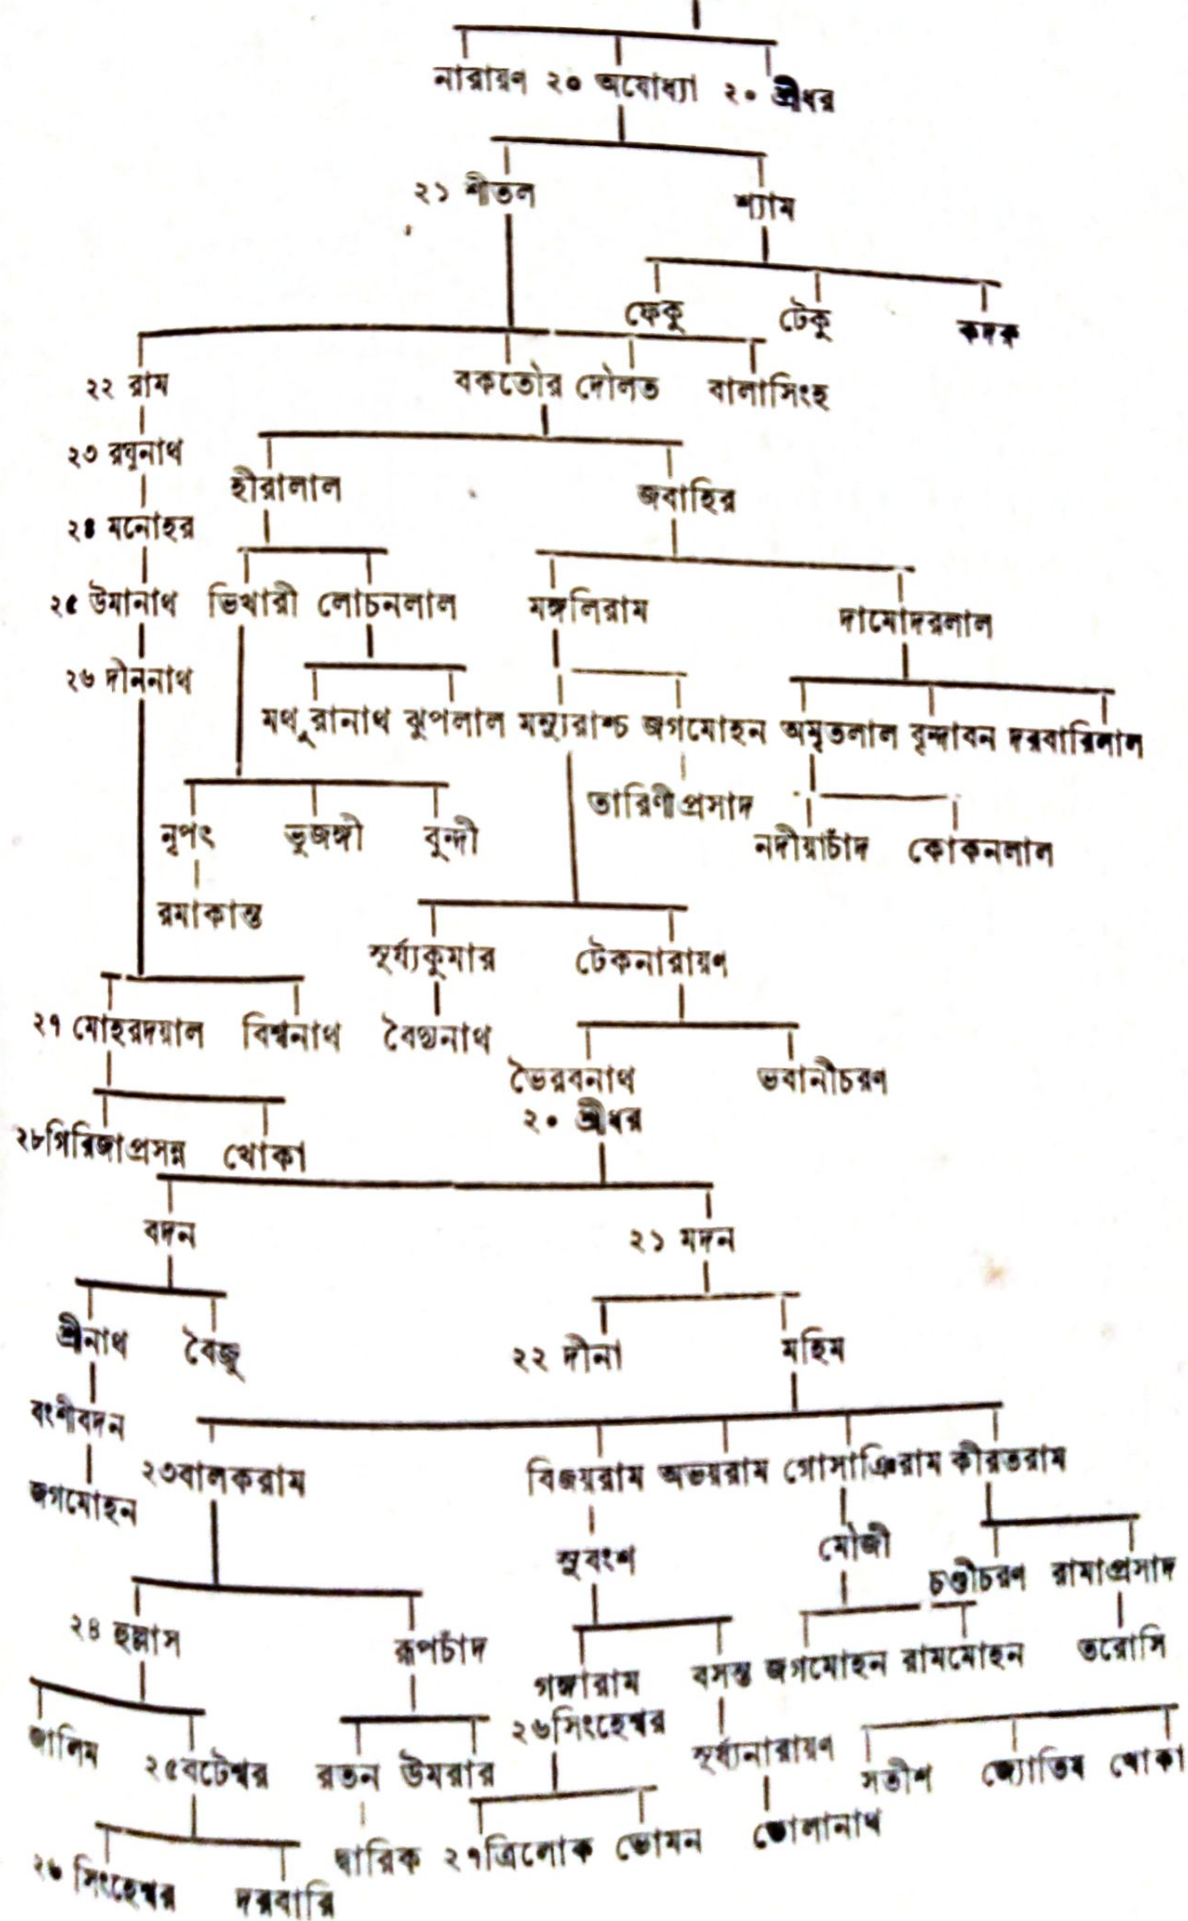 নারায়ণ ২০ অযোধ্যা ২০ শ্রীধর
২১ শীতল শ্যাম
ফেকু টেকু কদরু
২২ রাম বকতোর দৌলত বালাসিংহ
২৩ রঘুনাথ হীরালাল জবাহির
২৪ মনোহর
২৫ উমানাথ ভিখারী লোচনলাল মঙ্গলিরাম দামোদরলাল
২৬ দীননাথ
মথুরানাথ ঝুপলাল জগমোহন অমৃতলাল বৃন্দাবন দরবারিলাল
তারিণীপ্রসাদ
নৃপৎ ভুজঙ্গী বুন্দী নদীয়াচাঁদ কোকনলাল
রমাকান্ত
সূর্য্যকুমার টেকনারায়ণ
২৭ মোহরদয়াল বিশ্বনাথ বৈদ্যনাথ
ভৈরবনাথ ভবানীচরণ
২০ শ্রীধর
২৮গিরিজাপ্রসন্ন খোকা
বদন ২১ মদন
শ্রীনাথ বৈজু ২২ দীনা মহিম
বংশীবদন
২৩বালকরাম বিজয়রাম অভয়রাম গোসাঞিরাম কীরতরাম
জগমোহন
সুবংশ মৌজী চণ্ডীচরণ রামাপ্রসাদ
২৪ হুল্লাস রূপচাঁদ
গঙ্গারাম বসন্ত জগমোহন রামমোহন তরোসি
জালিম ২৫বটেশ্বর রতন উমরার ২৬সিংহেশ্বর সূর্য্যনারায়ণ সতীশ জ্যোতিষ খোকা
২৬ সিংহেশ্বর দরবারি দ্বারিক ২৭ত্রিলোক ভোমন ভোলানাথ